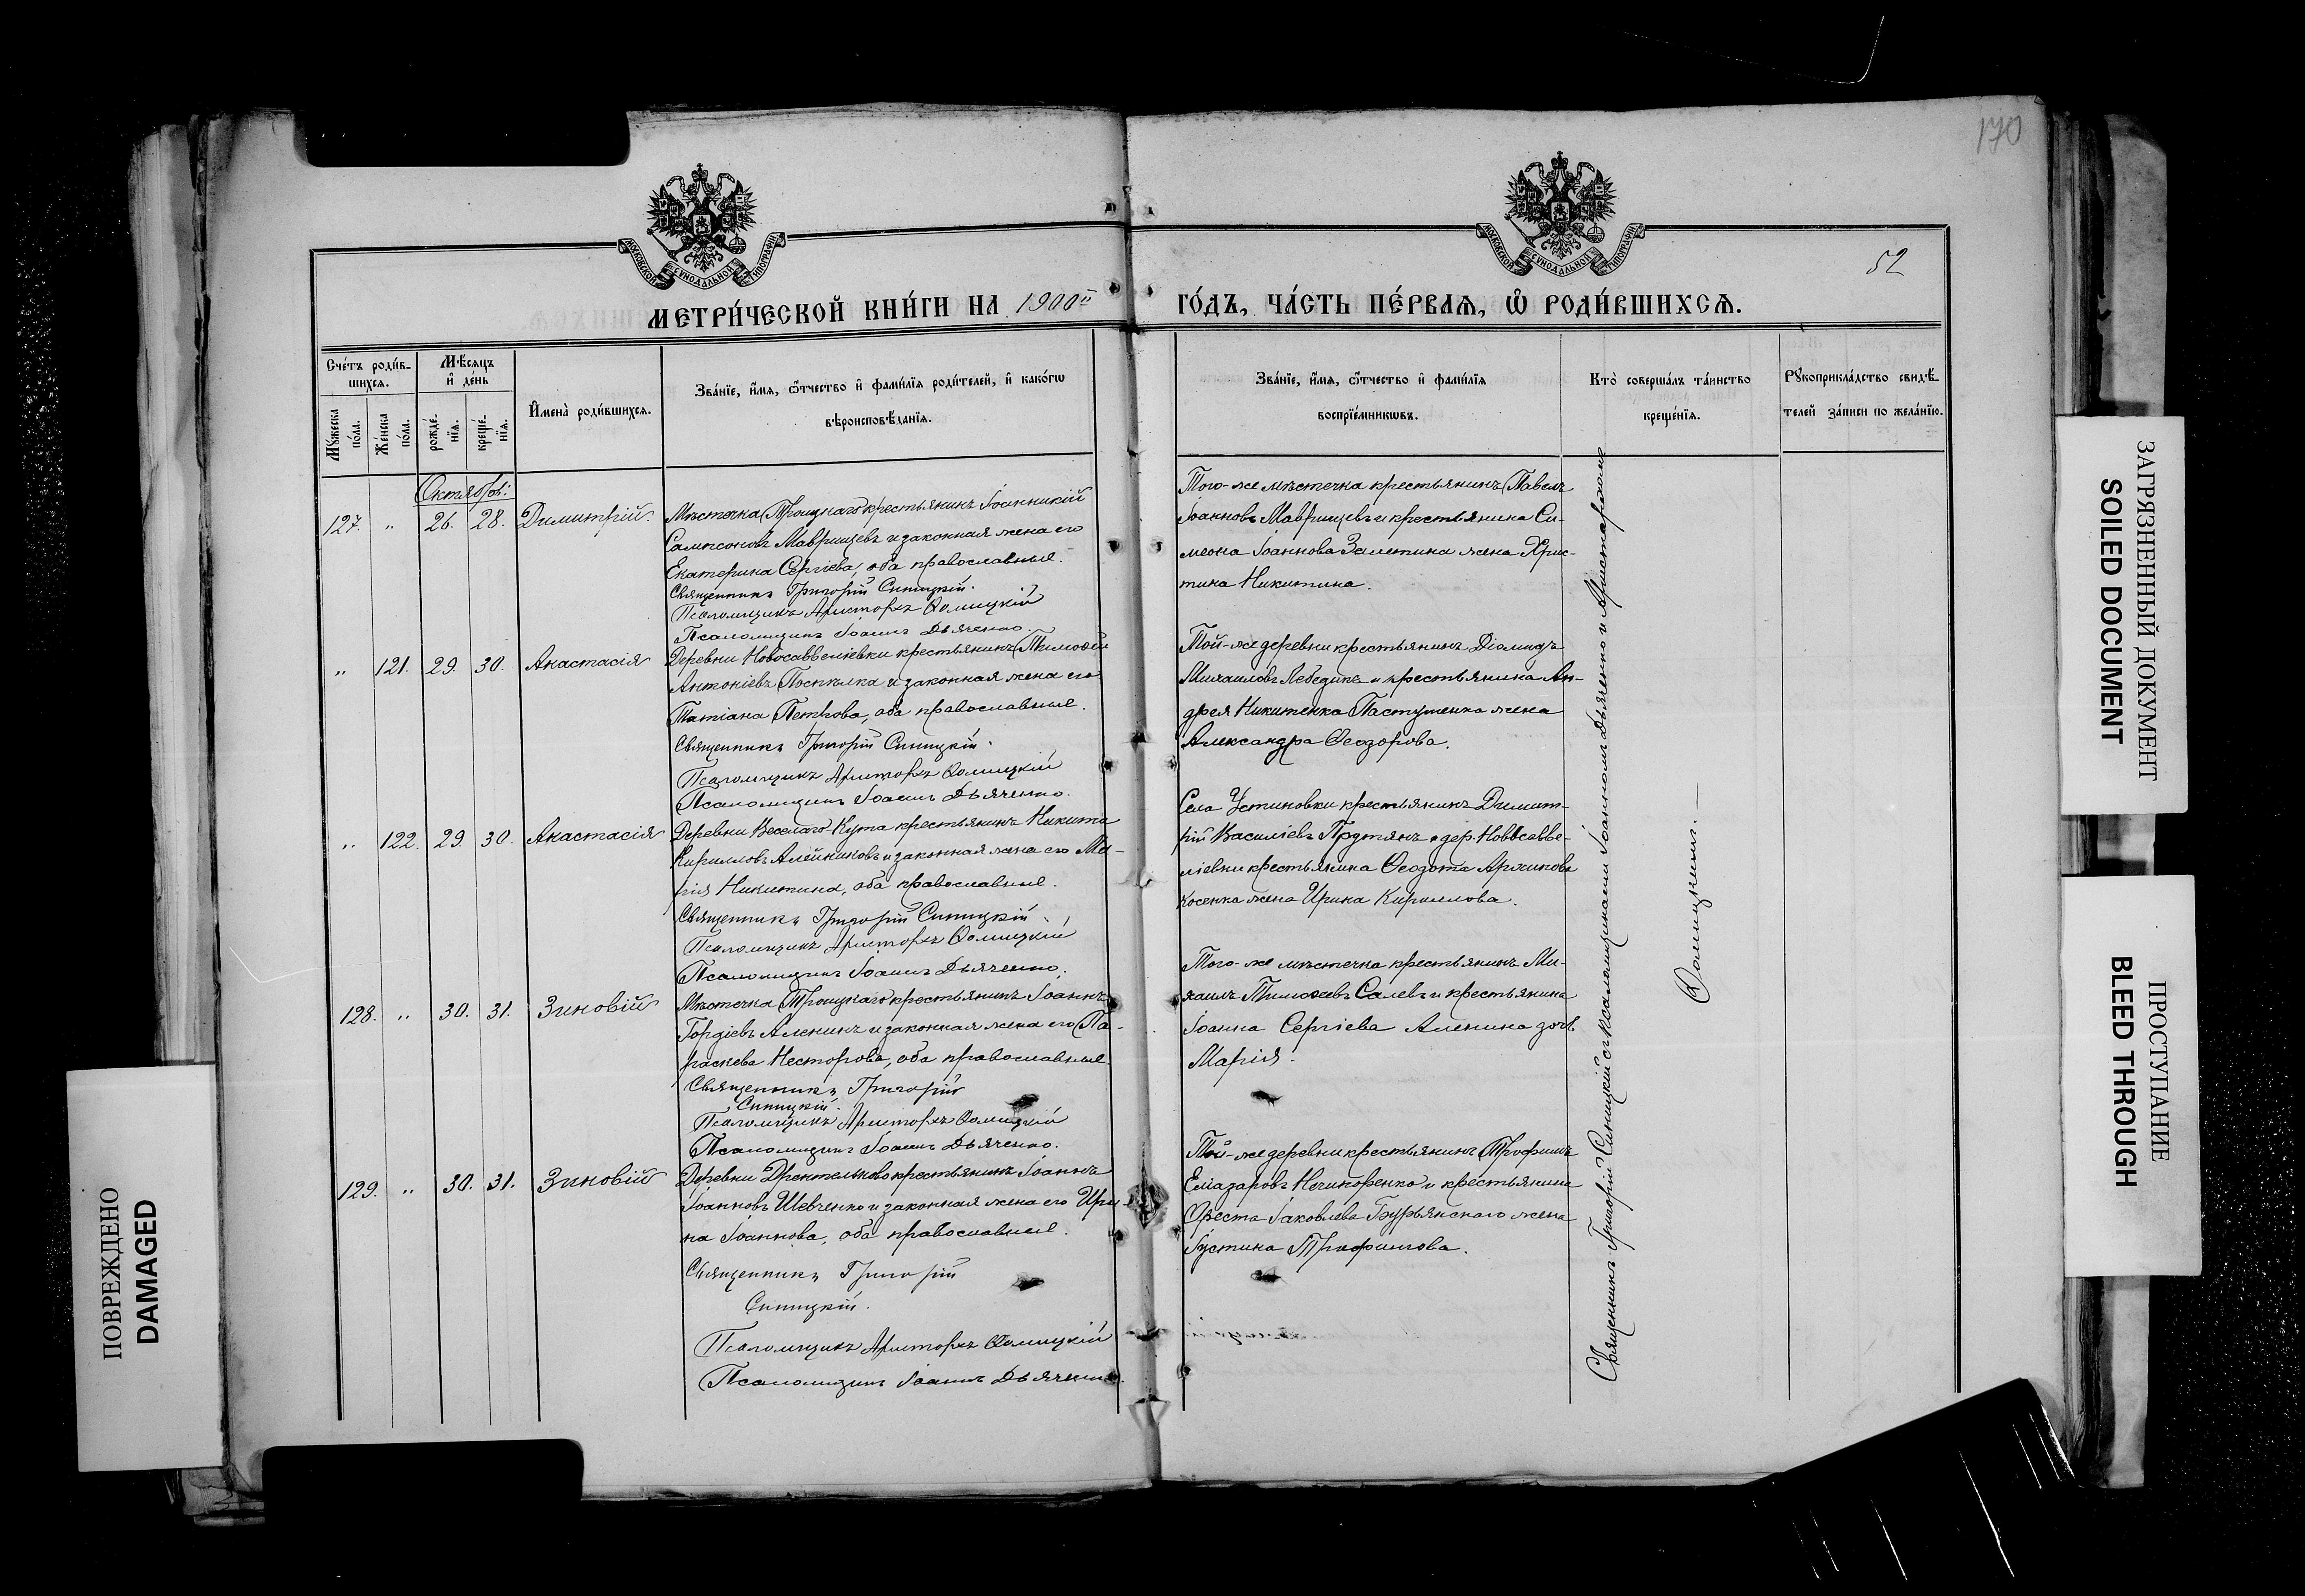 170
МОСКОВСКОЙ СѴНОДАЛЬНОЙ ТИПОГРАФІИ
МОСКОВСКОЙ СѴНОДАЛЬНОЙ ТИПОГРАФІИ
52
МЕТРИ́ЧЕСКОЙ КНИ́ГИ НА 1900й
ГО́ДЪ, ЧА́СТЬ ПЕ́РВАѦ, Ѡ҆ РОДИ́ВШИХСѦ.
Сче́тъ роди́в-
шихсѧ.
Мѣ́сяцъ
и҆ де́нь
Мꙋ́жеска
по́ла.
Же́нска
по́ла.
рожде́-
нїѧ.
креще́-
нїѧ.
И҆мена̀ роди́вшихсѧ.
Зва́нїе, и҆́мѧ, ѻ҆́тчество и҆ фами́лїѧ роди́телей, и҆ како́гѡ
вѣроисповѣ́данїѧ.
Зва́нїе, и҆́мѧ, ѻ҆́тчество и҆ фами́лїѧ
воспрїе́мникѡвъ.
Кто̀ соверша́лъ та́инство
креще́нїѧ.
Рꙋкоприкла́дство свидѣ́-
телей за́писи по жела́нїю.
Октябрь:
127. " 26. 28. Димитрій.
Мѣстечка Троицкаго крестьянинъ Іоанникій
Сампсоновъ Маврищевъ и законная жена его
Екатерина Сергіева, оба православные.
Священникъ Григорій Синицкій.
Псаломщикъ Аристархъ Ѳомицкій
Псаломщикъ Іоаннъ Дьяченко.
Того-же мѣстечка крестьянинъ Павелъ
Іоанновъ Маврищевъ и крестьянина Си-
меона Іоаннова Залетина жена Хрис-
тина Никитина.
" 121. 29. 30. Анастасія
Деревни Новосавеліевки крестьянинъ Тимоѳей
Антоніевъ Поспѣлка и законная жена его
Татіана Петрова, оба православные.
Священникъ Григорій Синицкій.
Псаломщикъ Аристархъ Ѳомицкій
Псаломщикъ Іоаннъ Дьяченко.
Той-же деревни крестьянинъ Діомидъ
Михаиловъ Лебедина и крестьянина Ан-
дрея Никитенка Пастушенка жена
Александра Ѳеодорова.
" 122. 29. 30. Анастасія
Деревни Веселаго-Кута крестьянинъ Никита
Кирилловъ Алейниковъ и законная жена его Ма-
рія Никитина, оба православные.
Священникъ Григорій Синицкій.
Псаломщикъ Аристархъ Ѳомицкій
Псаломщикъ Іоаннъ Дьяченко.
Села Устиновки крестьянинъ Димит-
рій Василіевъ и дер. Новосавве-
ліевки крестьянина Ѳеодота Архипова
Косенка жена Ирина Кириллова.
128. " 30. 31. Зиновій
Мѣстечка Троицкаго крестьянинъ Іоаннъ
Гордіевъ Аленинъ и законная жена его Па-
раскева Несторова, оба православные.
Священникъ Григорій
Синицкій.
Псаломщикъ Аристархъ Ѳомицкій
Псаломщикъ Іоаннъ Дьяченко.
Того-же мѣстечка крестьянинъ Ми-
хаилъ Тимоѳеевъ Салевъ и крестьянина
Іоанна Сергіева Аленина дочь
Марія.
129. " 30. 31. Зиновій
Деревни Дрентельново крестьянинъ Іоаннъ
Іоанновъ Шевченко и законная жена его Ири-
на Іоаннова, оба православные.
Священникъ Григорій
Синицкій.
Псаломщикъ Аристархъ Ѳомицкій
Псаломщикъ Іоаннъ Дьяченко.
Той-же деревни крестьянинъ Трофимъ
Елазаровъ Нечипоренко и крестьянина
Ореста Іаковлева Бурьянскаго жена
Іустина Трофимова.
Священникъ Григорій Синицкій съ псаломщиками Іоанномъ Дьяченко и Аристархомъ
Ѳомицкимъ.
ПОВРЕЖДЕНО
DAMAGED
ЗАГРЯЗНЕННЫЙ ДОКУМЕНТ
SOILED DOCUMENT
ПРОСТУПАНИЕ
BLED THROUGH